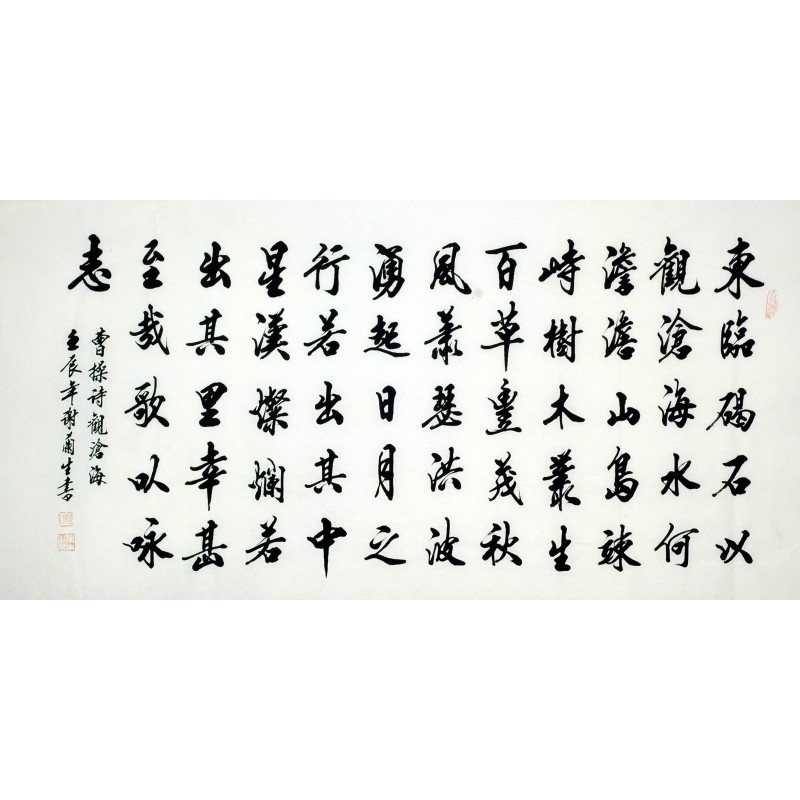 東臨碣石以
觀滄海水何
澹澹山島竦
峙樹木叢生
百草豐茂秋
風蕭瑟洪波
湧起日月之
行若出其中
星漢燦爛若
出其里幸甚
至哉歌以咏
志
曹操詩觀滄海
壬辰年謝生書